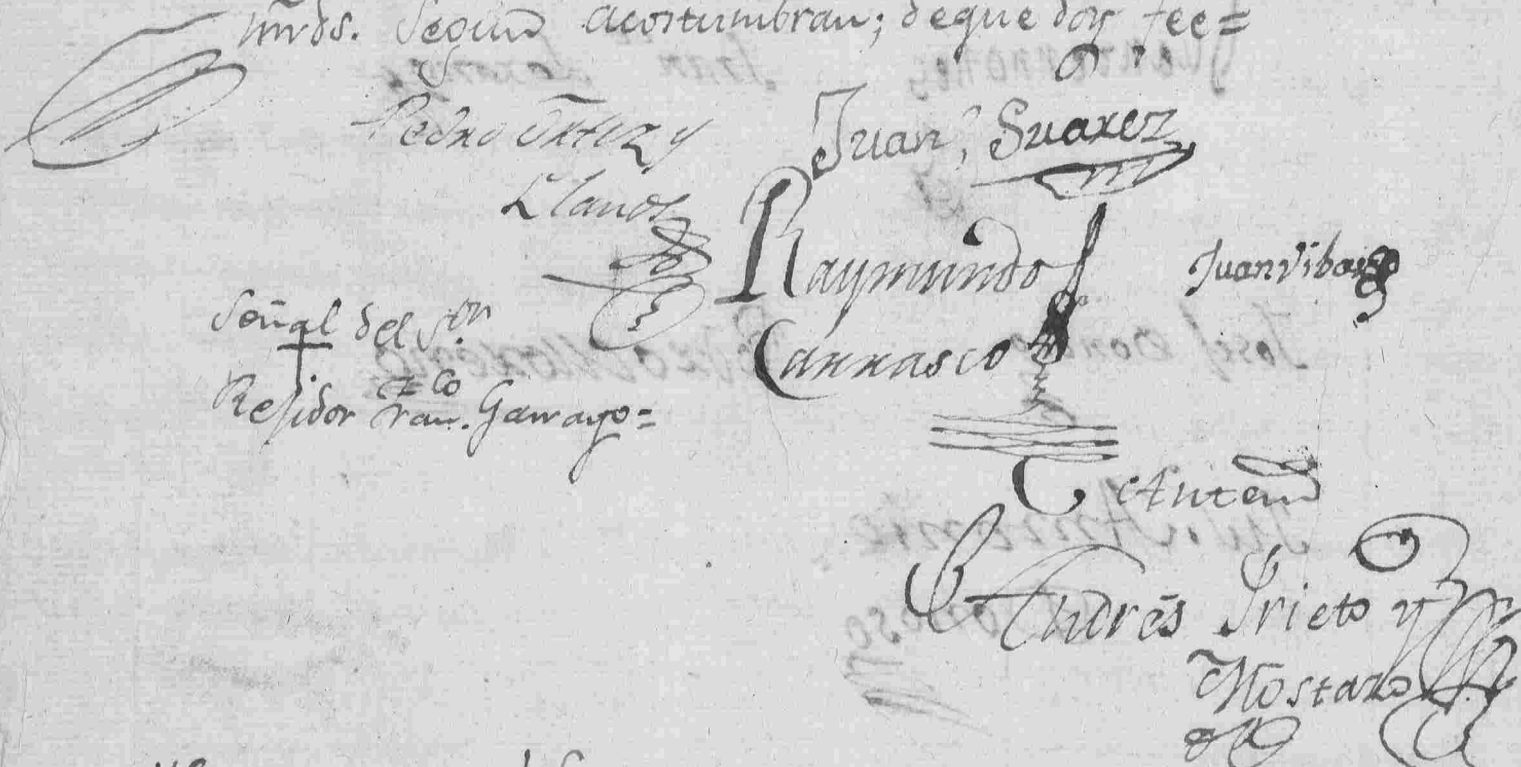 mrds. Segun acostumbran; deque doy fee=
Pedro Ortiz y
Llanos
Juan, Suarez
Raymundo
Carrasco
Juan Vibas
Señal del Sor.
Residor Franco. Garrayo=
Antemi
Andrés Prieto y
Mostazo